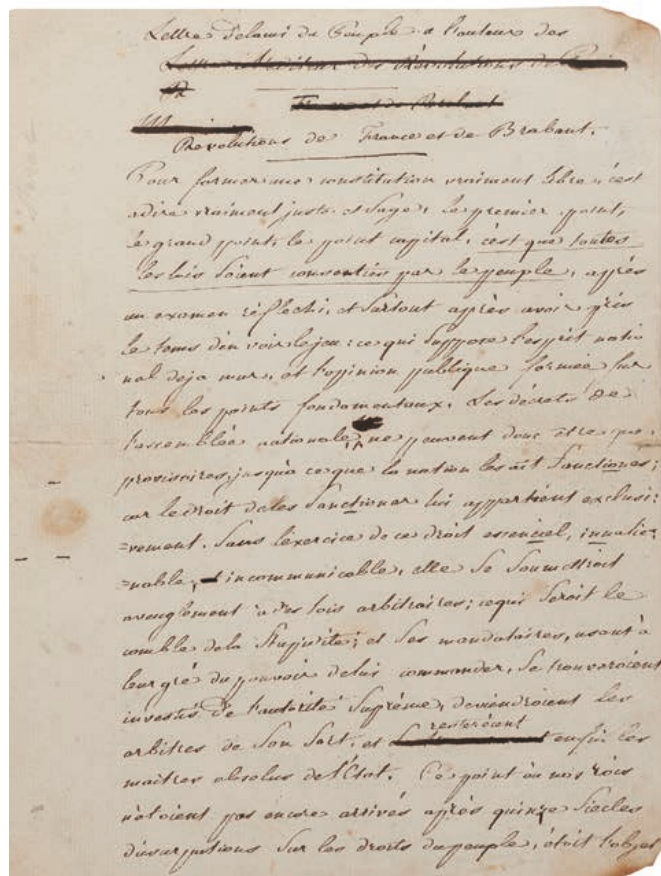 Lettre de l'ami du Peuple a l'auteur des
Revolutions de France et de Brabant.
Pour former une constitution vraiment libre, c'est
adire vraiment juste et sage, le premier point,
le grand point, le point capital, c'est que toutes
les lois soient consenties par le peuple, après
un examen réflechi, et surtout après avoir pris
le tems d'en voir le jeu: ce qui suppose l'esprit natio
nal deja mur, et l'opinion publique formée sur
tous les points fondamentaux. Les décrets de
l'assemblée nationale, ne peuvent donc être que
provisoires, jusqu'à ce que la nation les ait sanctionés;
car le droit de les sanctioner lui appartient exclusi:
=vement. Sans l'exercice de ce droit essenciel, inalié:
=nable, incommunicable, elle se soumettroit
aveuglement à des lois arbitraires; ce qui seroit le
comble de la stupidité; et ses mandataires, usant à
leur gré du pouvoir de lui commander, se trouveroient
investis de l'autorité suprême, deviendroient les
arbitres de son sort, et resteroient enfin les
maitres absolus de l'État. Ce point où nos rois
n'etoient pas encore arrivés après quinze siecles
d'usurpations sur les droits du peuple, étoit l'objet